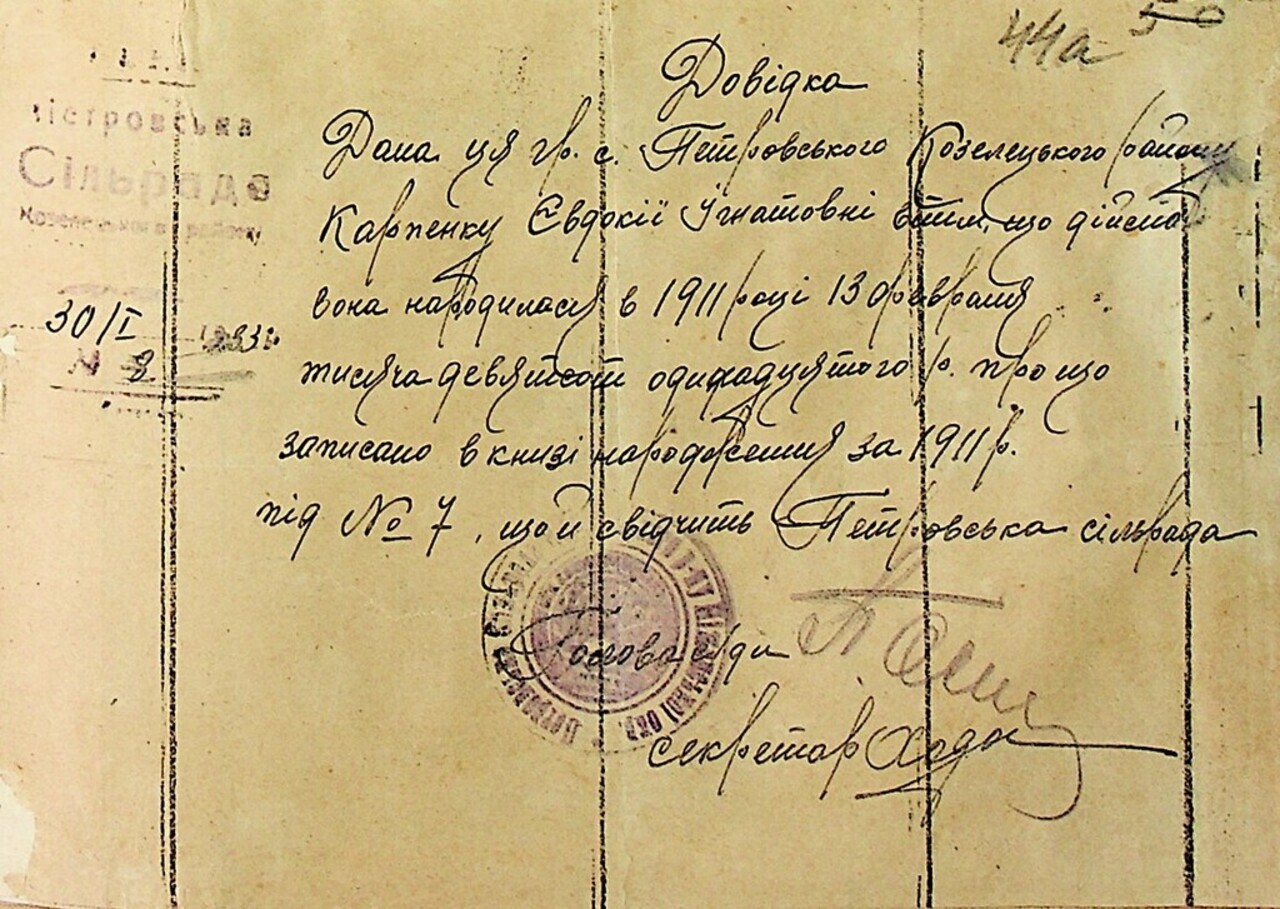 44а 50
Довідка
Дана ця гр. с. Петровського Козелецького району
Карпенку Євдокії Ігнатовні втим, що дійсно
вона народилася в 1911 році 13 февраля
тисяча девятсот одинадцятого р. про що
записано в книзі народження за 1911 р.
під № 7, що й свідчить Петровська сільрада
Голова с/ради
секретар Хода
Пістровська
Сільрада
Козелецького району
30/I 193
№ 8